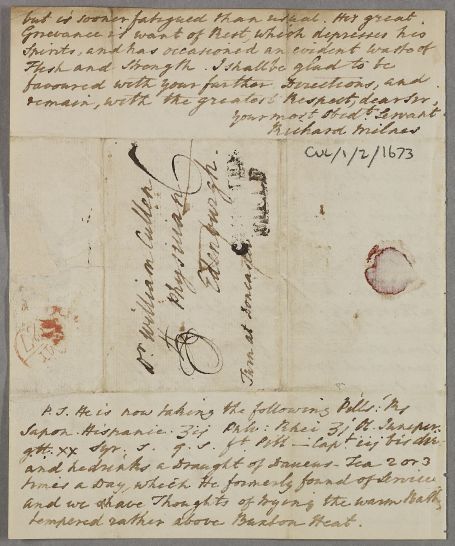 but is sooner fatigued than usual. His great
Grievance is want of Rest, which depresses his
Spirits, and has occasioned an evident waste of
Flesh and Strength. I shall be glad to be
favoured with your further Directions, and
remain, with the greatest Respect, dear Sir,
your most Obedt. Servant
Richard Milnes
CUL/1/2/1673
Dr. William Cullen
Physician
Edenburgh.
Turn at Doncaster
P.S. He is now taking the following Pills: Rs
Sapon. Hispanic. ʒij Pulv: Rhei ʒj Ol. Juniper.
gtt. xx Syr. S. q. S. ft. Pill — Capt. iij bis die
and he drinks a Draught of Daucus-Tea 2 or 3
times a Day, which He formerly found of Service
and we have Thoughts of trying the warm Bath,
tempered rather above Buxton Heat.